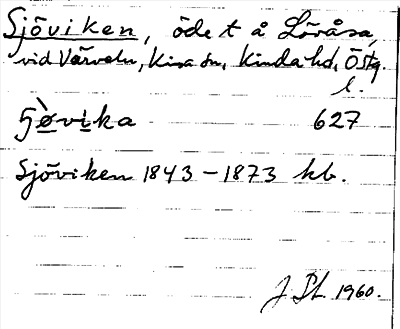 Sjöviken, öde t å Lövåsa,
vid Värveln, Kisa sn, Kinda hd, Östg.
l.
627
Sjöviken 1843 – 1873 kb.
1960.